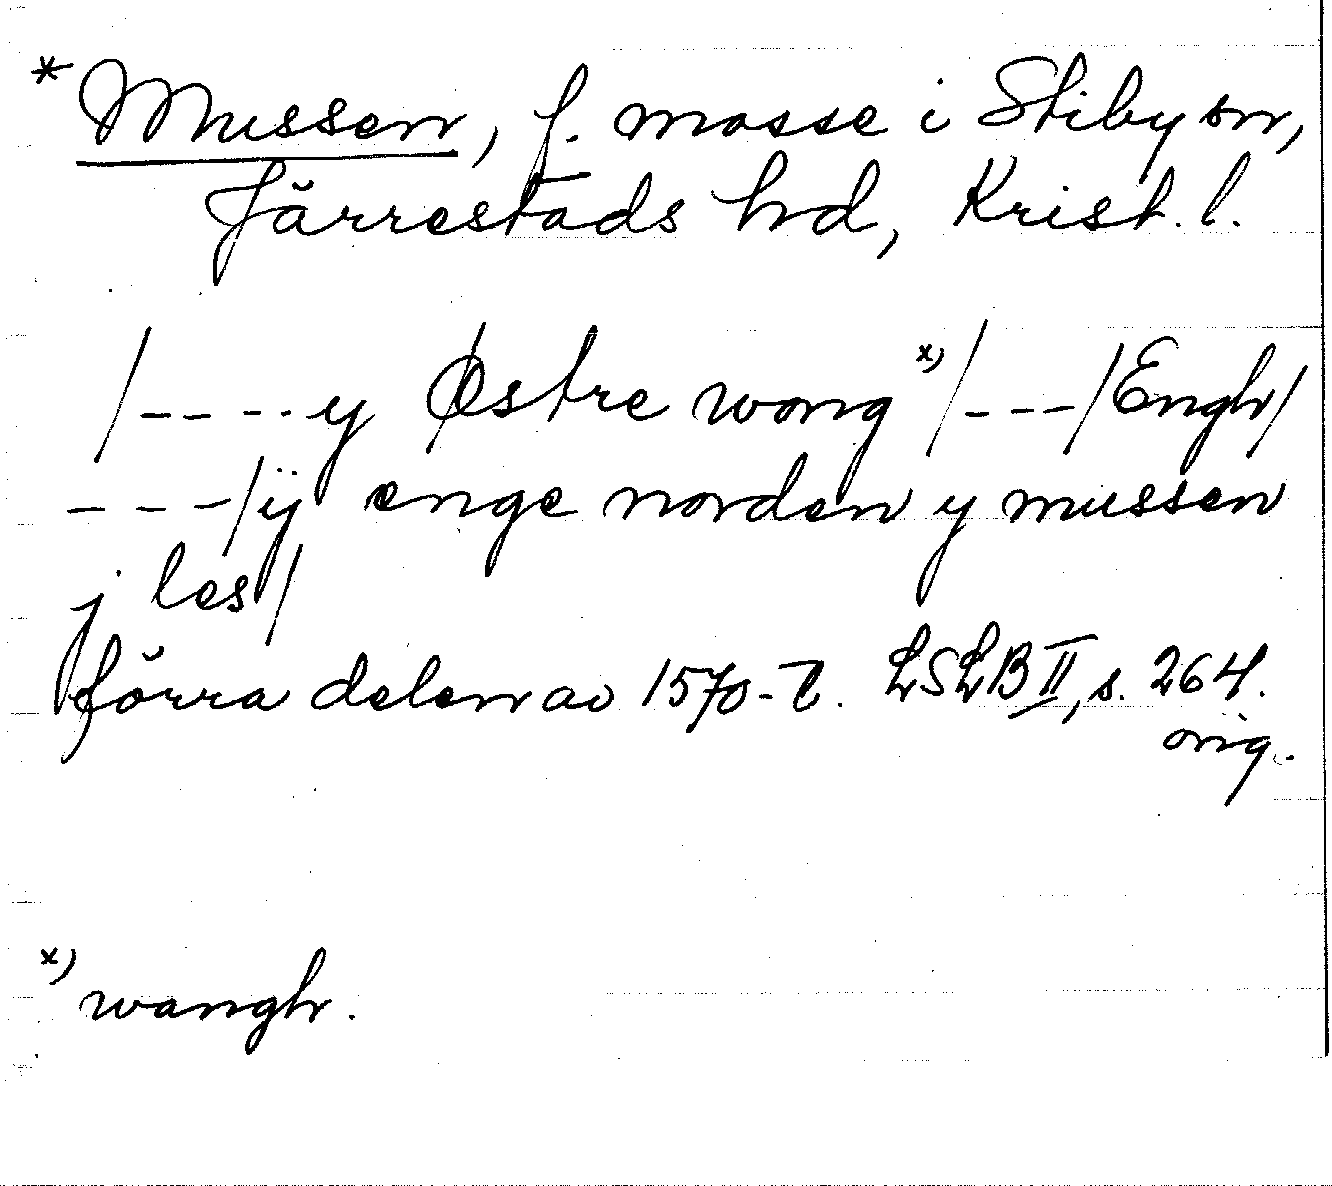 * Mussen, f. mosse i Stiby sn,
Järrestads hd, Krist. l.
/---- y Østre wong x) /---/Engh/
---/ÿ enge norden y mussen
j les/
förra delen av 1570-t. LSLB II, s. 264.
orig.
x) wangh.